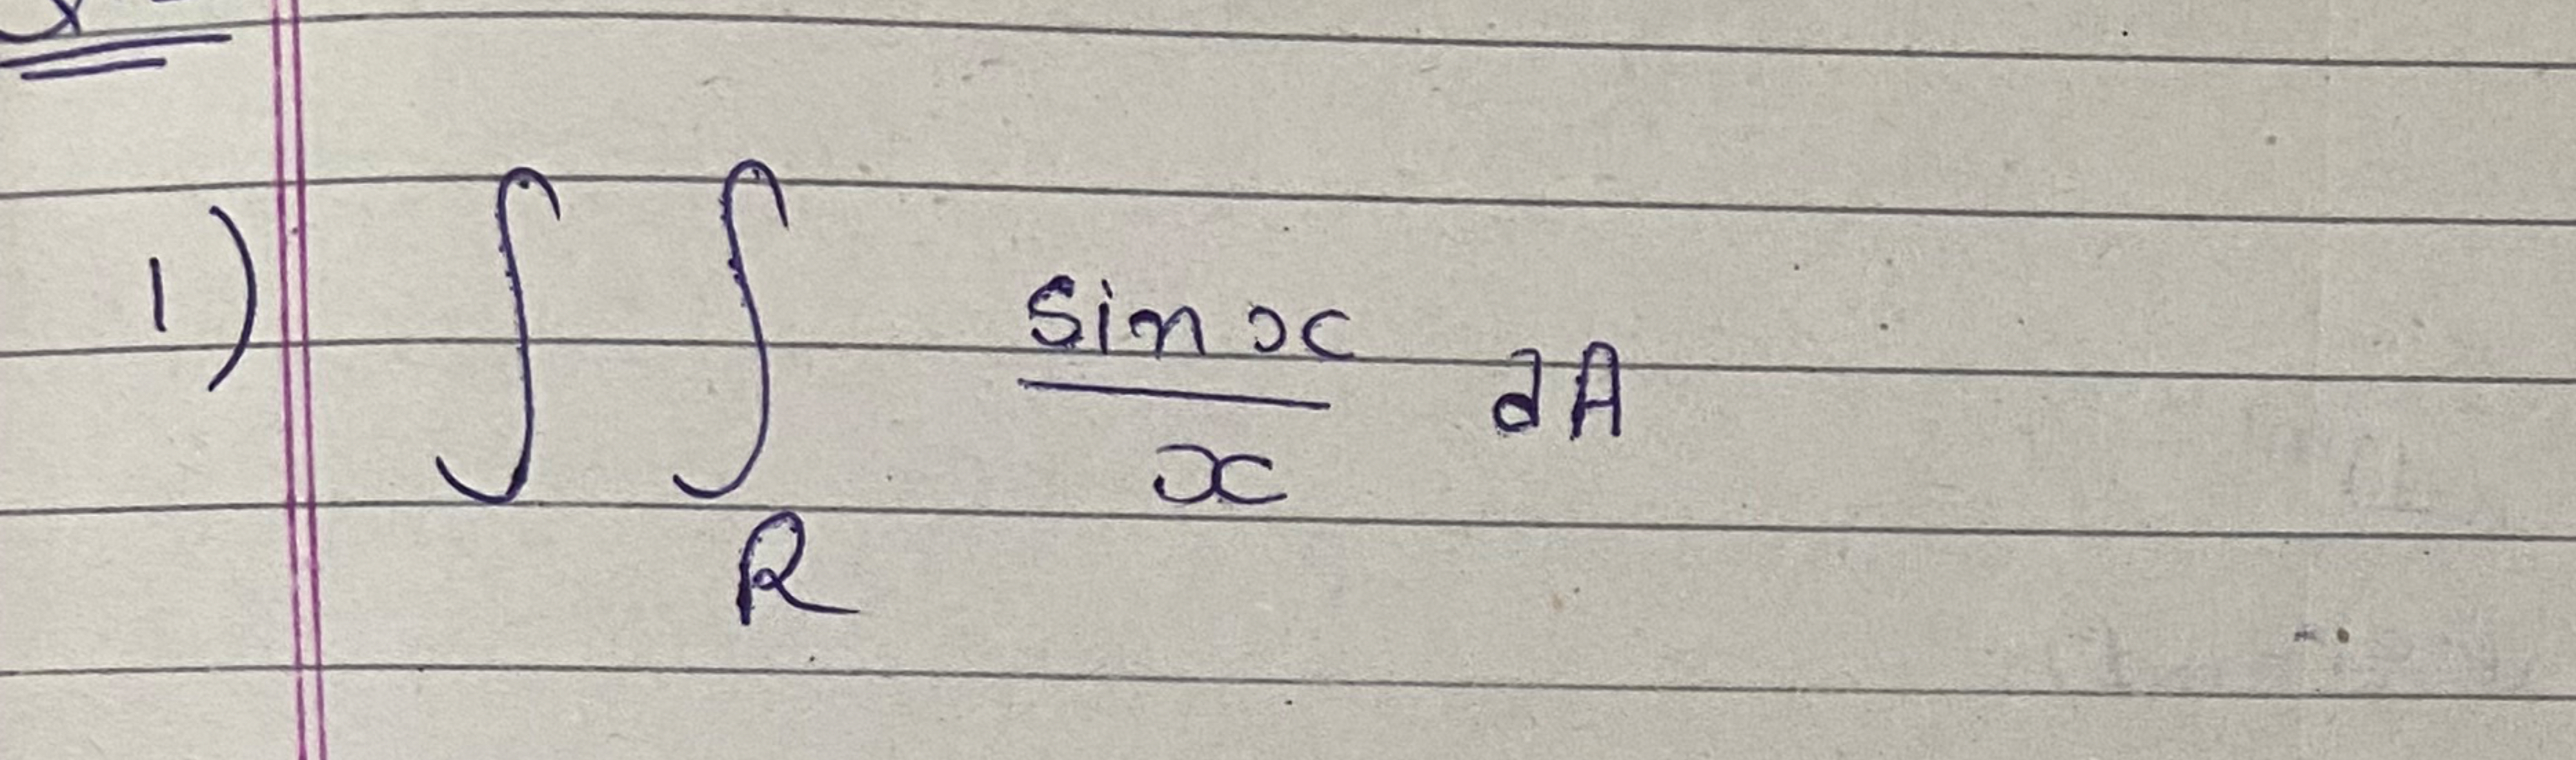 1) ∫∫_R sin x / x dA